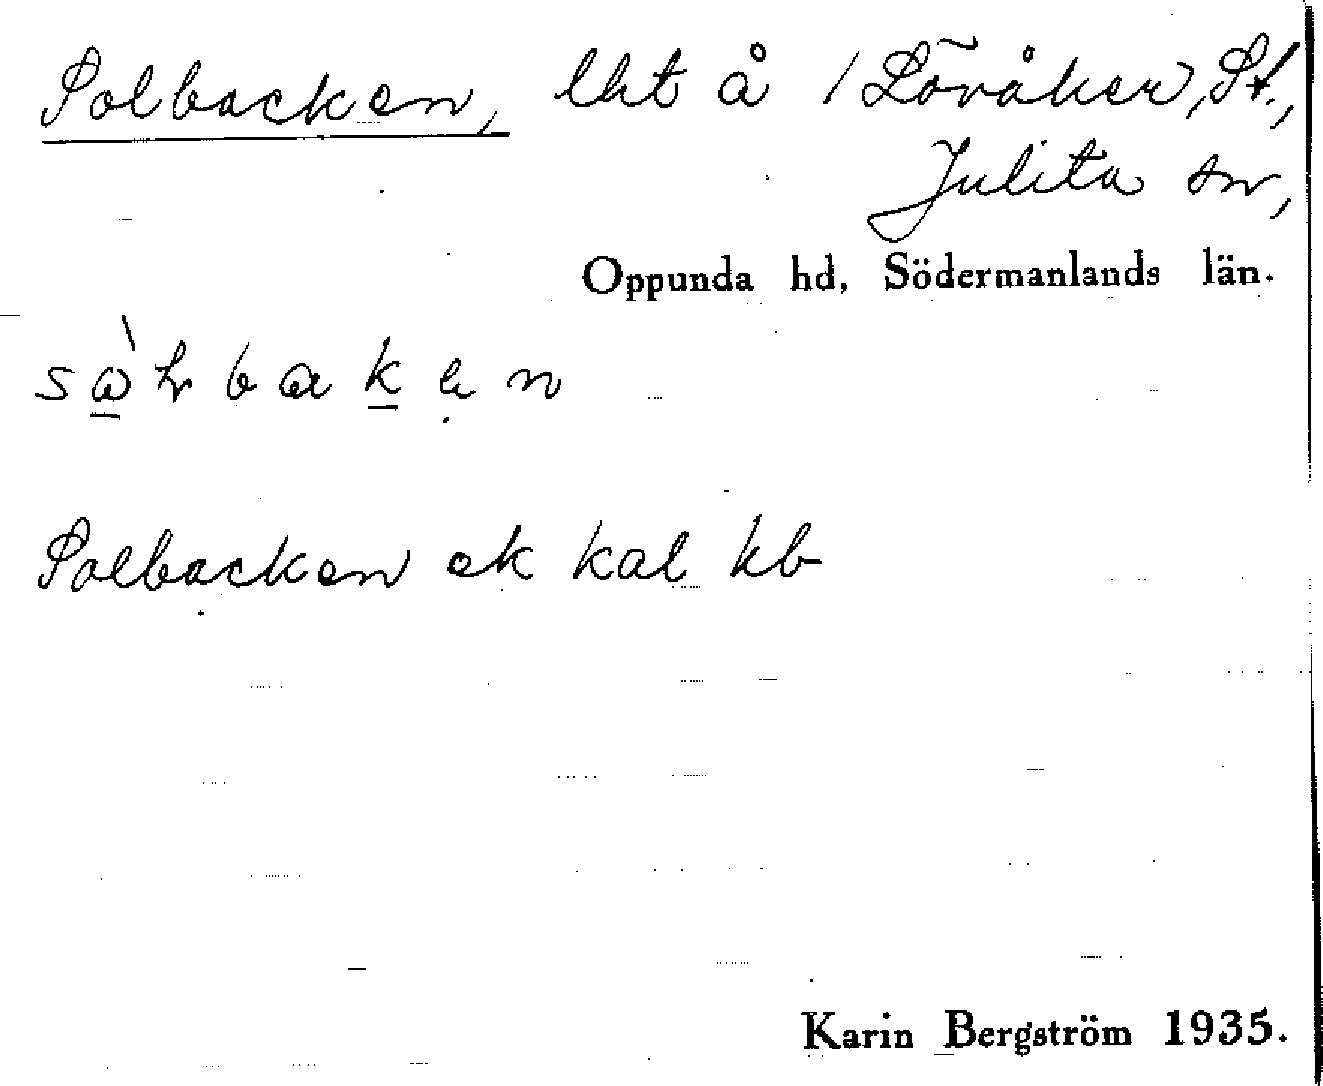 Solbacken, lht å 1 Lövåker, St.,
Julita sn,
Oppunda hd, Södermanlands län.
Solbacken ek kal kb
Karin Bergström 1935.